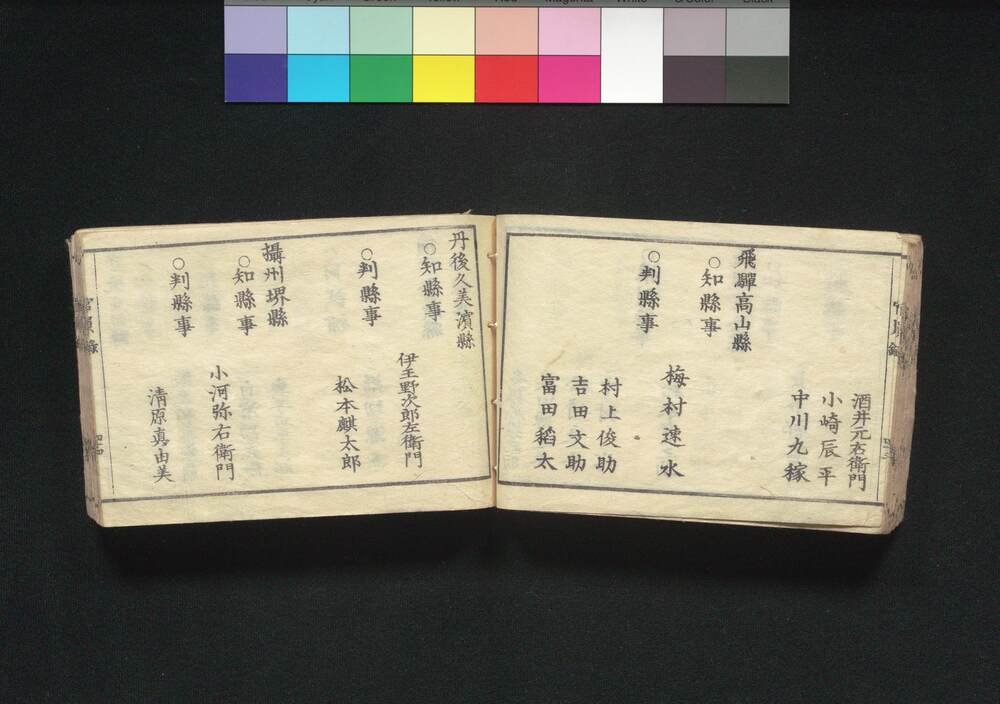 酒井元右衛門
小崎辰平
中川九稼
飛驒高山縣
○知縣事
梅村速水
○判縣事
村上俊助
吉田文助
富田稻太
丹後久美濱縣
○知縣事
伊王野次郎左衛門
○判縣事
松本麒太郎
攝州堺縣
○知縣事
小河弥右衛門
○判縣事
清原真由美